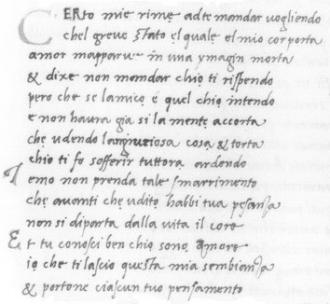 CERto mie rime adte mandar uogliendo
chel greue stato el quale el mio cor porta
amor mapparue in una ymagin morta
& dixe non mandar chio ti rispendo
pero che se lamico e quel chio intendo
e non haura gia si la mente accorta
che udendo langiuriosa cosa & torta
chio ti fo sofferir tuttora ardendo
Temo non prenda tale smarrimento
che auanti che udito habbi tua pesanza
non si diparta dalla vita il core
Et tu conosci ben chio sono Amore
io che ti lascio questa mia sembianza
& portone ciascun tuo pensamento